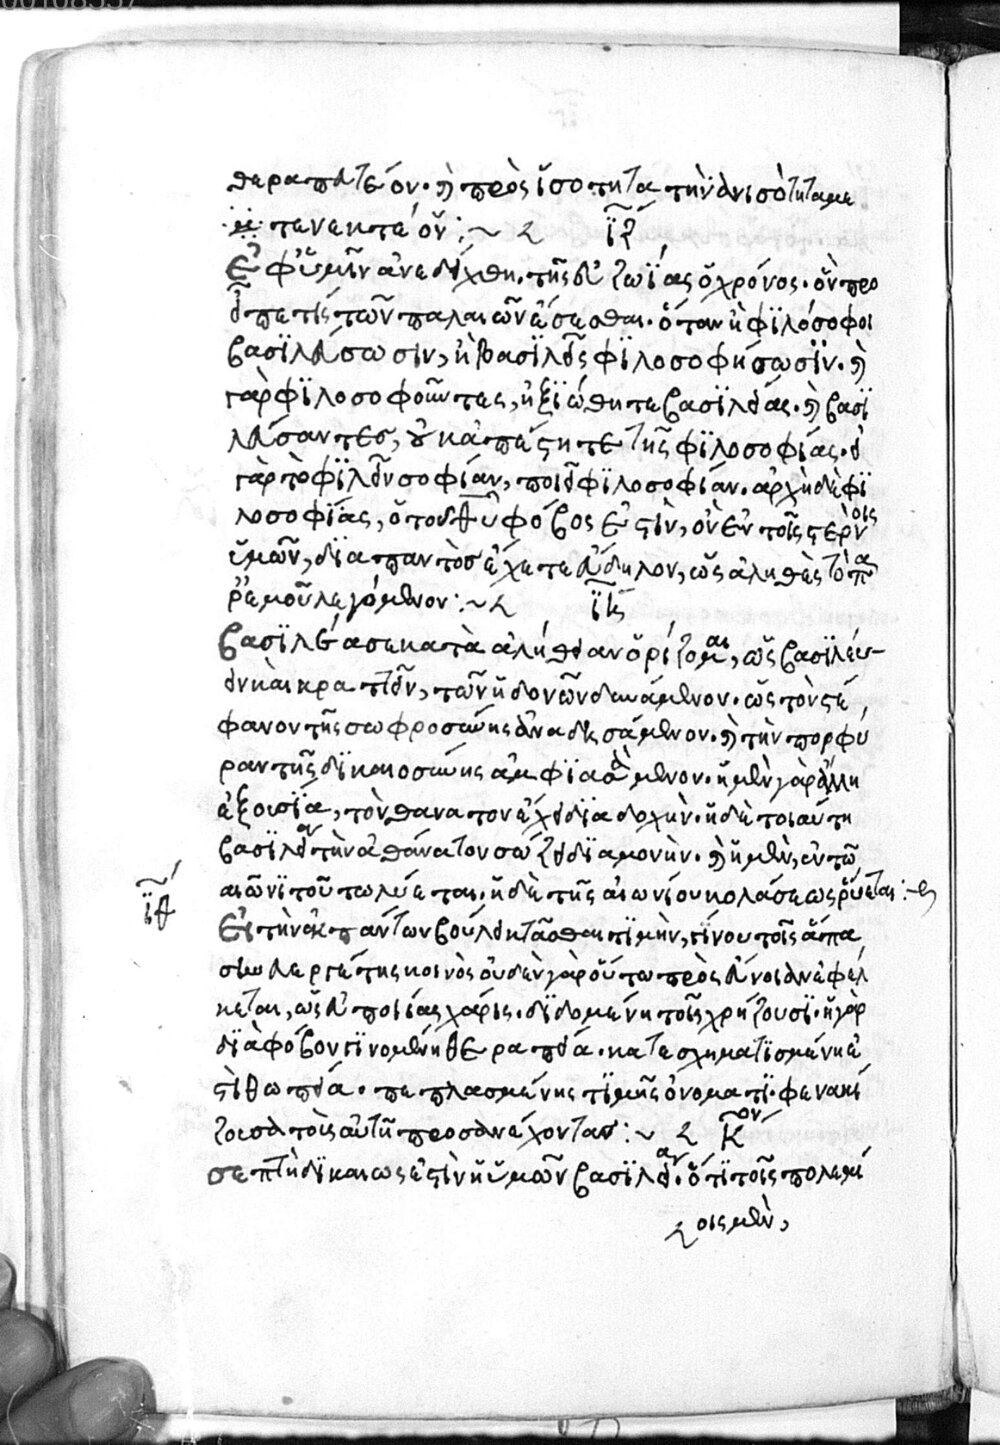 θεραπευτέον· καὶ πρὸς ἰσότητα τὴν ἀνισότητα με
τενεκτέον :~ ιζ
Ἐφ' ὑμῖν ἀνεδείχθη τῆς εὐζωΐας ὁ χρόνος· ὃν προ
εῖπε τίς τῶν παλαιῶν ἔσεσθαι· ὅταν ἢ φιλόσοφοι
βασιλεύσωσιν, ἢ βασιλεῖς φιλοσοφήσωσιν· καὶ
γὰρ φιλοσοφοῦντες, ἠξιώθητε βασιλείας· καὶ βασι
λεύσαντες, οὐκ ἀπέστητε τῆς φιλοσοφίας· εἰ
γὰρ τὸ φιλεῖν σοφίαν, ποιεῖ φιλοσοφίαν· ἀρχὴ δὲ φι
λοσοφίας, ὁ τοῦ θυ φόβος ἐστὶν, ὃν ἐν τοῖς στέρνοις
ὑμῶν, διαπαντὸς ἔχετε εὔδηλον, ὡς ἀληθὲς τὸ πα
ρ' ἐμοῦ λεγόμενον :~ ιη
Βασιλέα σε κατὰ ἀλήθειαν ὁρίζομαι, ὡς βασιλεύ-
ειν καὶ κρατεῖν, τῶν ἡδονῶν δυνάμενον· ὡς τὸν στέ
φανον τῆς σωφροσύνης ἀναδησάμενον· καὶ τὴν πορφύ
ραν τῆς δικαιοσύνης ἀμφιασάμενον· ἡ μὲν γὰρ ἄλλη
ἐξουσία, τὸν θάνατον ἔχει διαδοχὴν· ἡ δὲ τοιαύτη
βασιλεία τὴν ἀθάνατον σώζει διαμονὴν· καὶ ἡ μὲν, ἐν τῷ
αἰῶνι τούτω λύεται· ἡ δὲ τῆς αἰωνίου κολάσεως ῥύεται :~
ιθ
Εἰ τὴν ἐκ πάντων βούλει κτᾶσθαι τιμὴν, γίνου τοῖς ἅπα
σιν εὐεργέτης κοινὸς οὐδὲν γὰρ οὕτω πρὸς εὔνοιαν ἐφέλ
κεται, ὡς εὐποιίας χάρις· διδομένη τοῖς χρήζουσι· ἡ γὰρ
διὰ φόβον γινομένη θεραπεία· κατεσχηματισμένη ἐ
στὶ θωπεία· πεπλασμένης τιμῆς ὀνόματι· φενακί
ζουσα τοὺς αὐτῇ προσανέχοντας :~ κον
σεπτὴ δικαίως ἐστὶν ἡ ὑμῶν βασιλεία· ὅτι τοῖς πολεμί
οις μὲν,